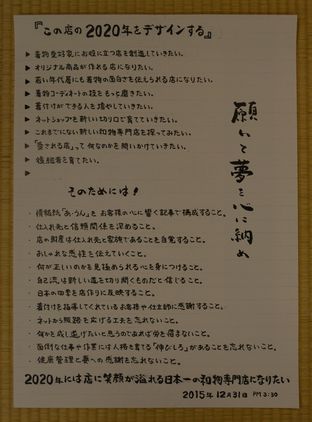 『この店の2020年をデザインする』
▶ 着物愛好家にお役に立つ店を創造していきたい。
▶ オリジナル商品が作れる店になりたい。
▶ 若い年代層にも着物の面白さを伝えられる店になりたい。
▶ 着物コーディネートの技をもっと磨きたい。
▶ 着付けができる人を増やしていきたい。
▶ ネットショップを新しい切り口で育てていきたい。
▶ これまでにない新しい和物専門店を探ってみたい。
▶ 「愛される店」って何なのかを問いかけていきたい。
▶ 後継者を育てたい。
▶
願いと夢を心に納め
そのためには!
・情報誌「あ・うん」をお客様の心に響く記事で構成すること。
・仕入れ先と信頼関係を深めること。
・店の財産は仕入れ先と家族であることを自覚すること。
・おしゃれな感性を伝えていくこと。
・何が正しいのかを見極められる心を身につけること。
・自己流は新しい道を切り開くものだと信じること。
・日本の四季を店作りに反映すること。
・着付けを指導してくれているお客様や仕立師に感謝すること。
・ネットから販路を広げる工夫を忘れないこと。
・何かを成し遂げたいと思うのであれば労を惜まないこと。
・面倒な仕事や作業には人格を育てる「伸びしろ」があることを忘れないこと。
・健康管理と妻への感謝を忘れないこと。
2020年には店に笑顔が溢れる日本一の和物専門店になりたい
2015年12月31日 PM3:30